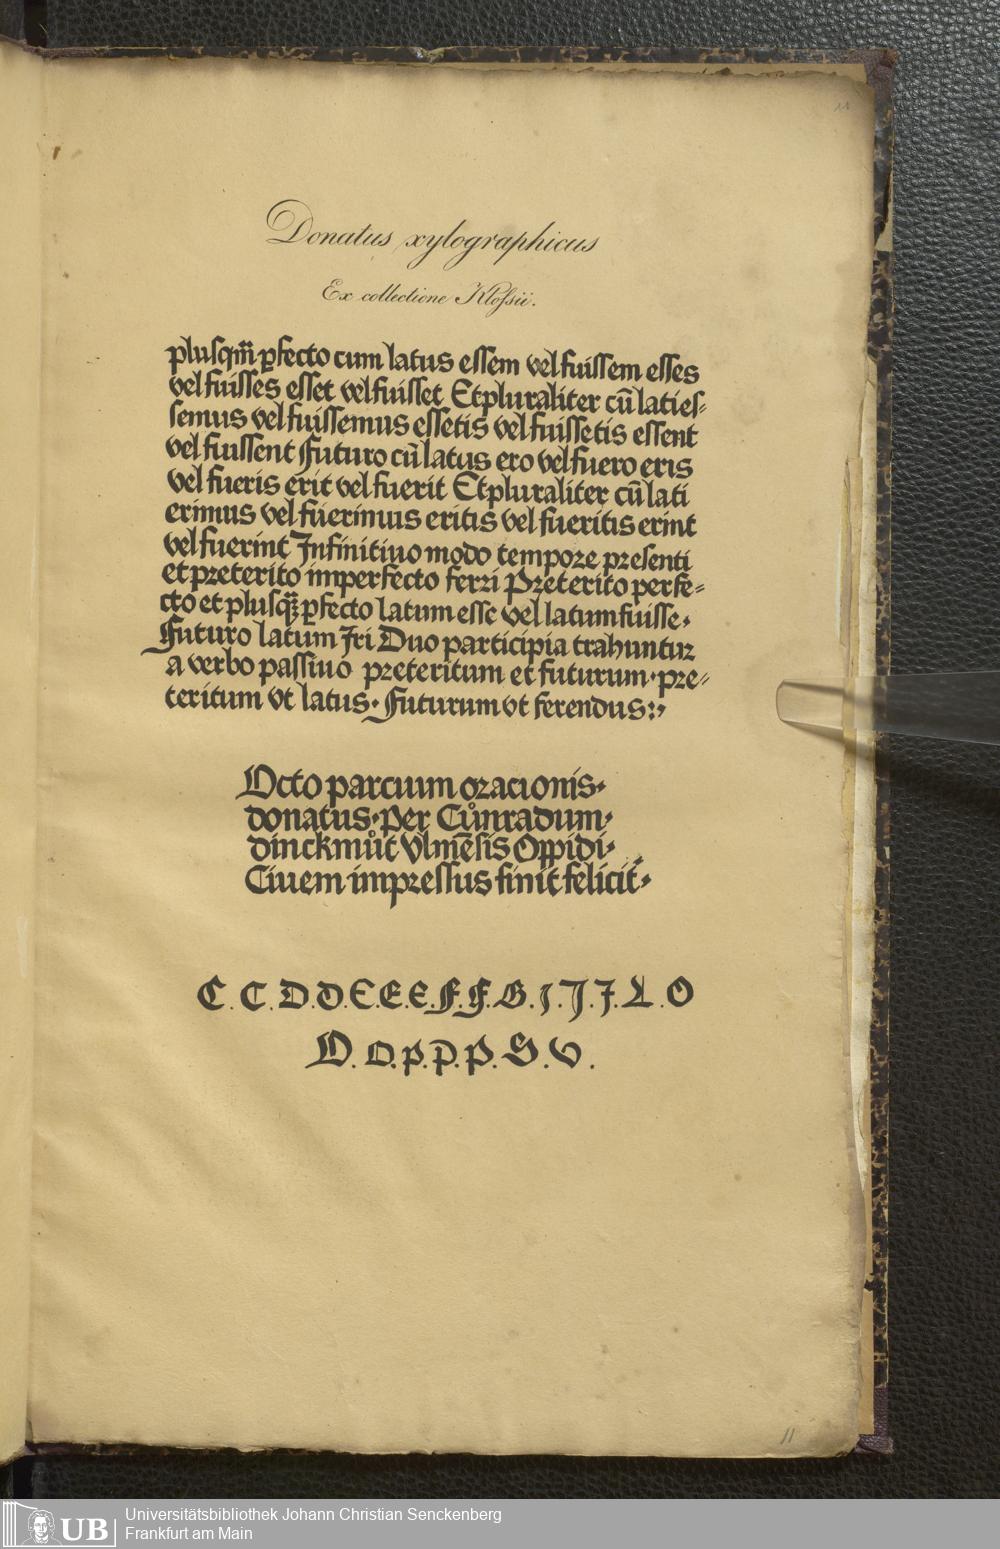 11
Donatus xylographicus
Ex collectione Klossii.
plusqm̄ ꝑfecto cum latus essem vel fuissem esses
vel fuisses esset vel fuisset Et pluraliter cū laties-
semus vel fuissemus essetis vel fuissetis essent
vel fuissent Futuro cū latus ero vel fuero eris
vel fueris erit vel fuerit Et pluraliter cū lati
erimus vel fuerimus eritis vel fueritis erint
vel fuerint Infinitiuo modo tempore presenti
et preterito imperfecto ferri Preterito perfe-
cto et plusqꝫ ꝑfecto latum esse vel latum fuisse.
Futuro latum Iri Duo participia trahuntur
a verbo passiuo preteritum et futurum. pre-
teritum vt latus. Futurum vt ferendus:,
Octo parcium oracionis.
donatus. Per Cůnradum.
dinckmůt Vlmēsis Oppidi.
Ciuem impressus finit̄ felicit̄.
C. C. D. D. E. E. E. F. F. G. I. I. I. L. O
O. O. P. P. P. S. V.
11
UB
Universitätsbibliothek Johann Christian Senckenberg
Frankfurt am Main